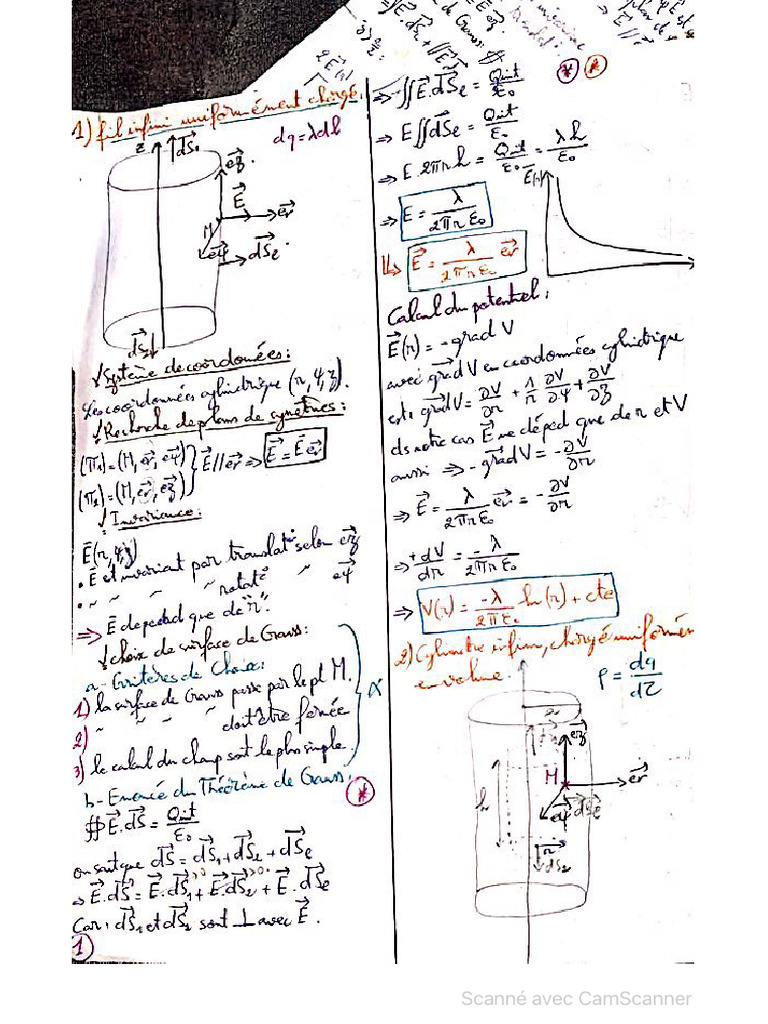 1) fil infini uniformément chargé.
dq = λdl
z
dS₁
ez.
E
er
M
eφ
dSℓ.
dS₂
✓ Système de coordonnées:
Les coordonnées cylindrique (r, φ, z).
✓ Recherche de plans de symétries:
(π₁) = (M, er, eφ) } E // er ⇒ E = E er
(π₂) = (M, er, ez)
✓ Invariance:
E(r, φ, z)
• E et invariant par translat° selon ez
• " " " rotat° " eφ
⇒ E depend que de "r".
✓ choix de surface de Gauss:
a - Critères de Choix:
1) la surface de Gauss passe par le pt M.
2) " " " " doit être fermée
3) le calcul du champ soit le plus simple.
b - Enoncé du Théorème de Gauss:
∯ E.dS = Qint/ε₀
on sait que dS = dS₁ + dS₂ + dSℓ
⇒ E.dS = E.dS₁ + E.dS₂ + E.dSℓ
Car: dS₁ et dS₂ sont ⊥ avec E.
1
⇒ ∬ E.dSℓ = Qint/ε₀
⇒ E ∬ dSℓ = Qint/ε₀
⇒ E 2πrh = Qint/ε₀ = λh/ε₀
E(r)
⇒ E = λ/2πrε₀
E = λ/2πrε₀ er
Calcul du potentiel:
E(r) = - grad V
avec grad V en coordonnées cylindrique
est: grad V = ∂V/∂r + 1/r ∂V/∂φ + ∂V/∂z
ds notre cas E ne déped que de r et V
aussi ⇒ - grad V = - ∂V/∂r
⇒ E = λ/2πrε₀ er = - ∂V/∂r
⇒ +dV/dr = -λ/2πrε₀
⇒ V(r) = -λ/2πε₀ ln(r) + cte
2) Cylindre infini, chargé uniformém
en volume.
ρ = dq/dτ
ez
M
er
h
eφ
dSℓ
dS₂
Scanné avec CamScanner